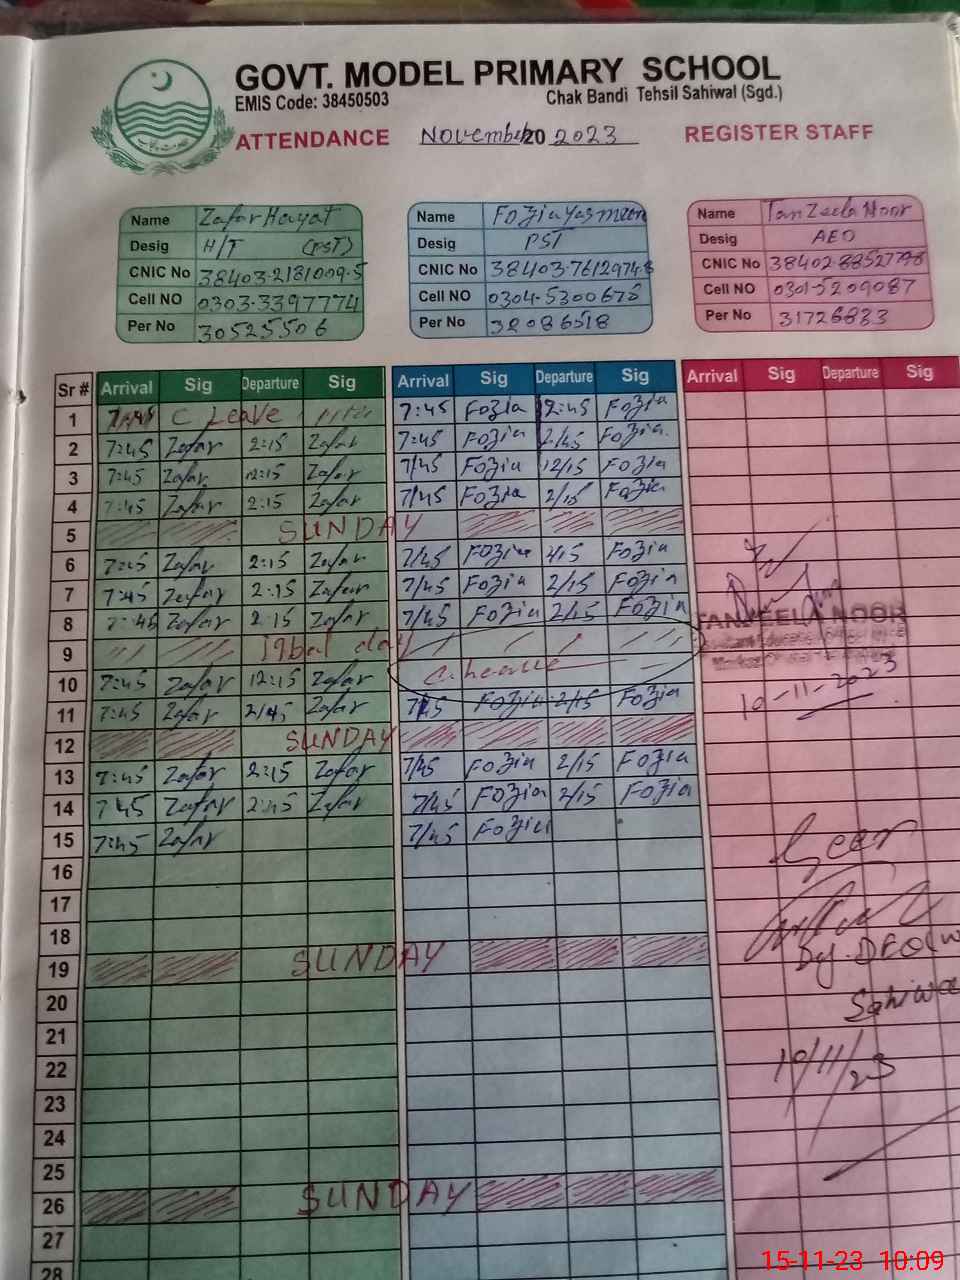 GOVT. MODEL PRIMARY SCHOOL
EMIS Code: 38450503 Chak Bandi Tehsil Sahiwal (Sgd.)
ATTENDANCE November 20 2023 REGISTER STAFF
Name Zafar Hayat Name Fozia Yasmeen Name Tanzeela Noor
Desig H/T (PST) Desig PST Desig AEO
CNIC No 38403-2181009-5 CNIC No 38403-7612974-8 CNIC No 38402-8852779-8
Cell NO 0303-3397774 Cell NO 0304-5300678 Cell NO 0301-5209087
Per No 30525506 Per No 32086518 Per No 31726883
Sr # Arrival Sig Departure Sig Arrival Sig Departure Sig Arrival Sig Departure Sig
1 C Leave 7:45 Fozia 2:45 Fozia
2 7:45 Zafar 2:15 Zafar 7:45 Fozia 2/45 Fozia
3 7:45 Zafar 12:15 Zafar 7/45 Fozia 12/15 Fozia
4 7:45 Zafar 2:15 Zafar 7/45 Fozia 2/15 Fozia
5 SUNDAY
6 7:45 Zafar 2:15 Zafar 7/45 Fozia Fozia
7 7:45 Zafar 2:15 Zafar 7/45 Fozia 2/15 Fozia
8 7:45 Zafar 2:15 Zafar 7/45 Fozia 2/15 Fozia TANZEELA NOOR
9 Iqbal day
10 7:45 Zafar 12:15 Zafar C. Leave 10-11-2023
11 7:45 Zafar 2/45 Zafar 7/45 Fozia 2/15 Fozia
12 SUNDAY
13 7:45 Zafar 2:15 Zafar 7/45 Fozia 2/15 Fozia
14 7 45 Zafar 2:45 Zafar 7/45 Fozia 2/15 Fozia
15 7:45 Zafar 7/45 Fozia Seen
16
17
18 Dy. DEO
19 SUNDAY
20 Sahiwal
21
22 10/11/23
23
24
25
26 SUNDAY
27
28
15-11-23 10:09